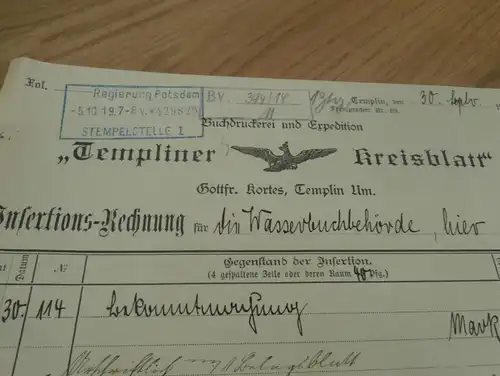 Fol.
Regierung Potsdam
STEMPELSTELLE I
BV. 344/14
Templin, den 30. Septr.
Buchdruckerei und Expedition
„Templiner Kreisblatt"
Gottfr. Kortes, Templin Um.
Insertions-Rechnung für die Wasserbuchbehörde, hier
Datum
№
Gegenstand der Insertion.
(4 gespaltene Zeile oder deren Raum 40 Pfg.)
30. 114 Bekanntmachung
Mark
1 Belagsblatt